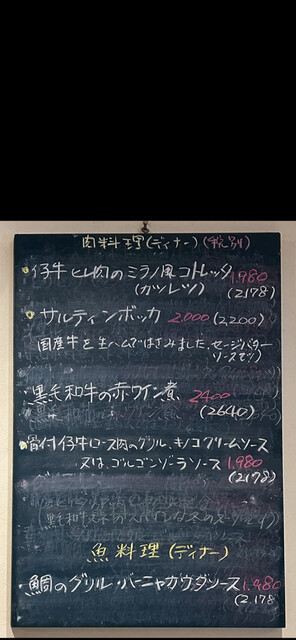 肉料理(ディナー)(税別)
仔牛ヒレ肉のミラノ風コトレッタ 1.980
(カツレツ) (2178)
サルティンボッカ 2.000 (2,200)
国産牛を生ハムではさみました。セージバター
ソースで
・黒毛和牛の赤ワイン煮 2400
(2640)
骨付仔牛ロース肉のグリル、キノコクリームソース
又は、ゴルゴンゾーラソース 1.980
(2178)
魚料理(ディナー)
・鯛のグリル・バーニャカウダソース 1.980
(2.178